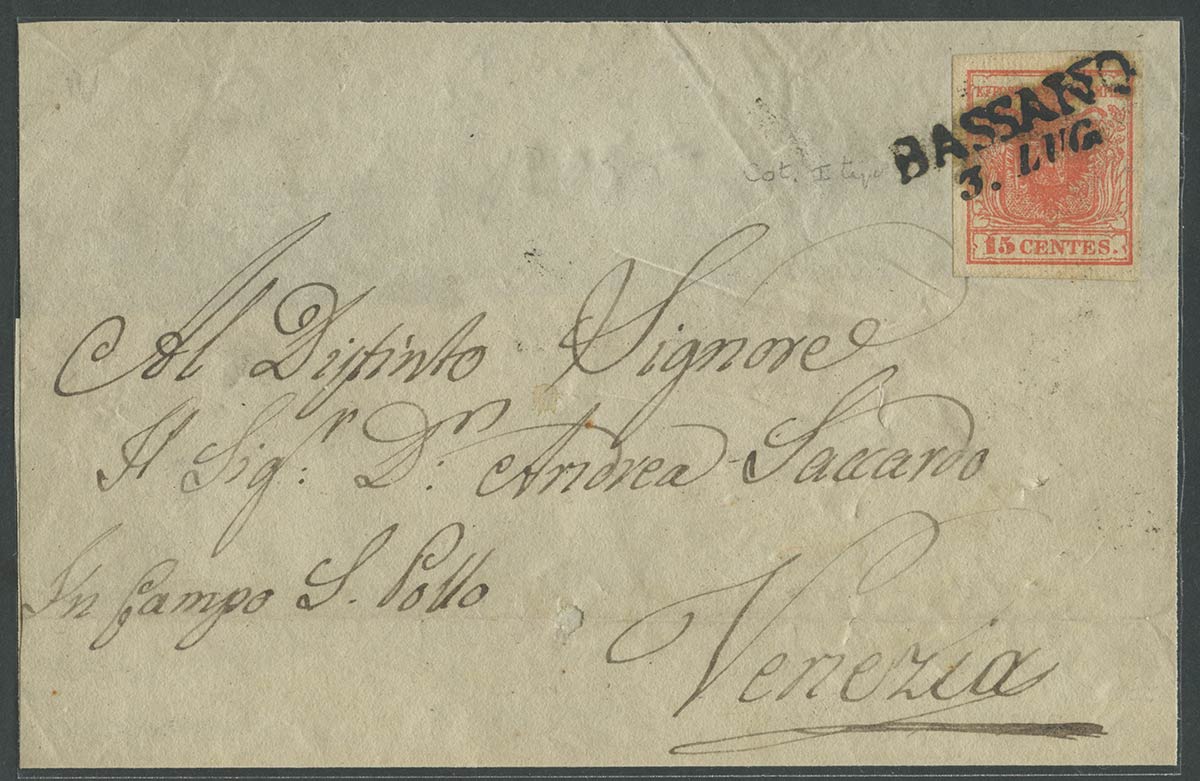 BASSANO
3. LUG
15 CENTES.
Cot. II tipo
Al Distinto Signore
Il Sigr: Dr: Andrea Saccardo
In Campo S. Pollo
Venezia